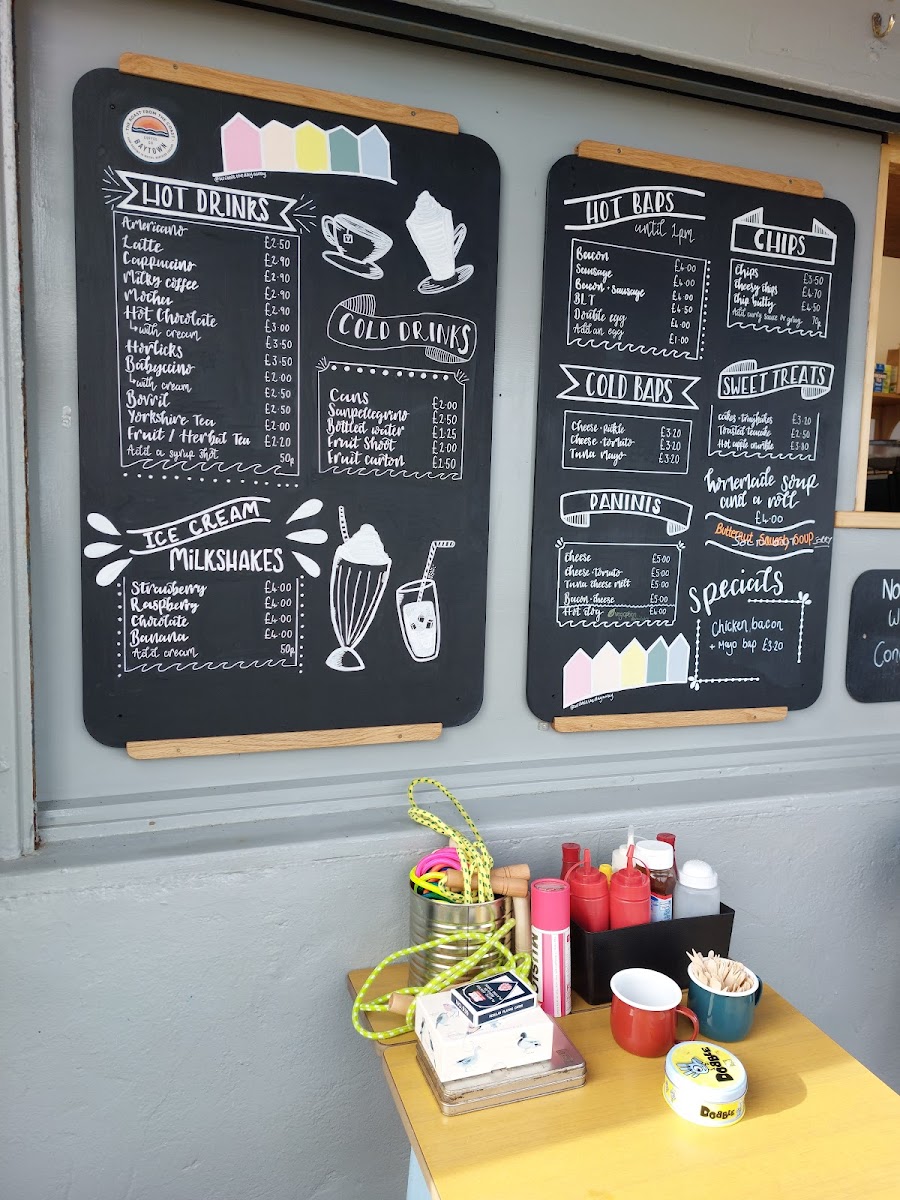 THE ROAST FROM THE COAST
BAYTOWN
HOT DRINKS
Americano £2.50
Latte £2.90
Cappuccino £2.90
Milky coffee £2.90
Mocha £2.90
Hot Chocolate £3.00
↳ with cream £3.50
Horlicks £3.50
Babyccino £2.00
↳ with cream £2.50
Bovril £2.50
Yorkshire Tea £2.00
Fruit / Herbal Tea £2.20
Add a syrup shot 50p
COLD DRINKS
Cans £2.00
Sanpellegrino £2.50
Bottled water £1.25
Fruit Shoot £2.00
Fruit carton £1.50
ICE CREAM
MILKSHAKES
Strawberry £4.00
Raspberry £4.00
Chocolate £4.00
Banana £4.00
Add cream 50p
HOT BAPS
until 1pm
Bacon £4.00
Sausage £4.00
Bacon + Sausage £4.00
BLT £4.50
Double egg £4.00
Add an egg £1.00
COLD BAPS
Cheese + pickle £3.20
Cheese + tomato £3.20
Tuna mayo £3.20
PANINIS
Cheese £5.00
Cheese + tomato £5.00
Tuna cheese melt £5.00
Bacon + cheese £5.00
Hot dog £4.00
CHIPS
Chips £3.50
Cheesy chips £4.70
Chip butty £4.50
Add curry sauce or gravy 70p
SWEET TREATS
cakes + traybakes £3.20
Toasted teacake £2.50
Hot apple crumble £3.80
homemade soup
and a roll
£4.00
Butternut Squash Soup
Specials
Chicken, bacon
+ Mayo bap £3.20
No
W
Con
DOBBLE
DOBBLE